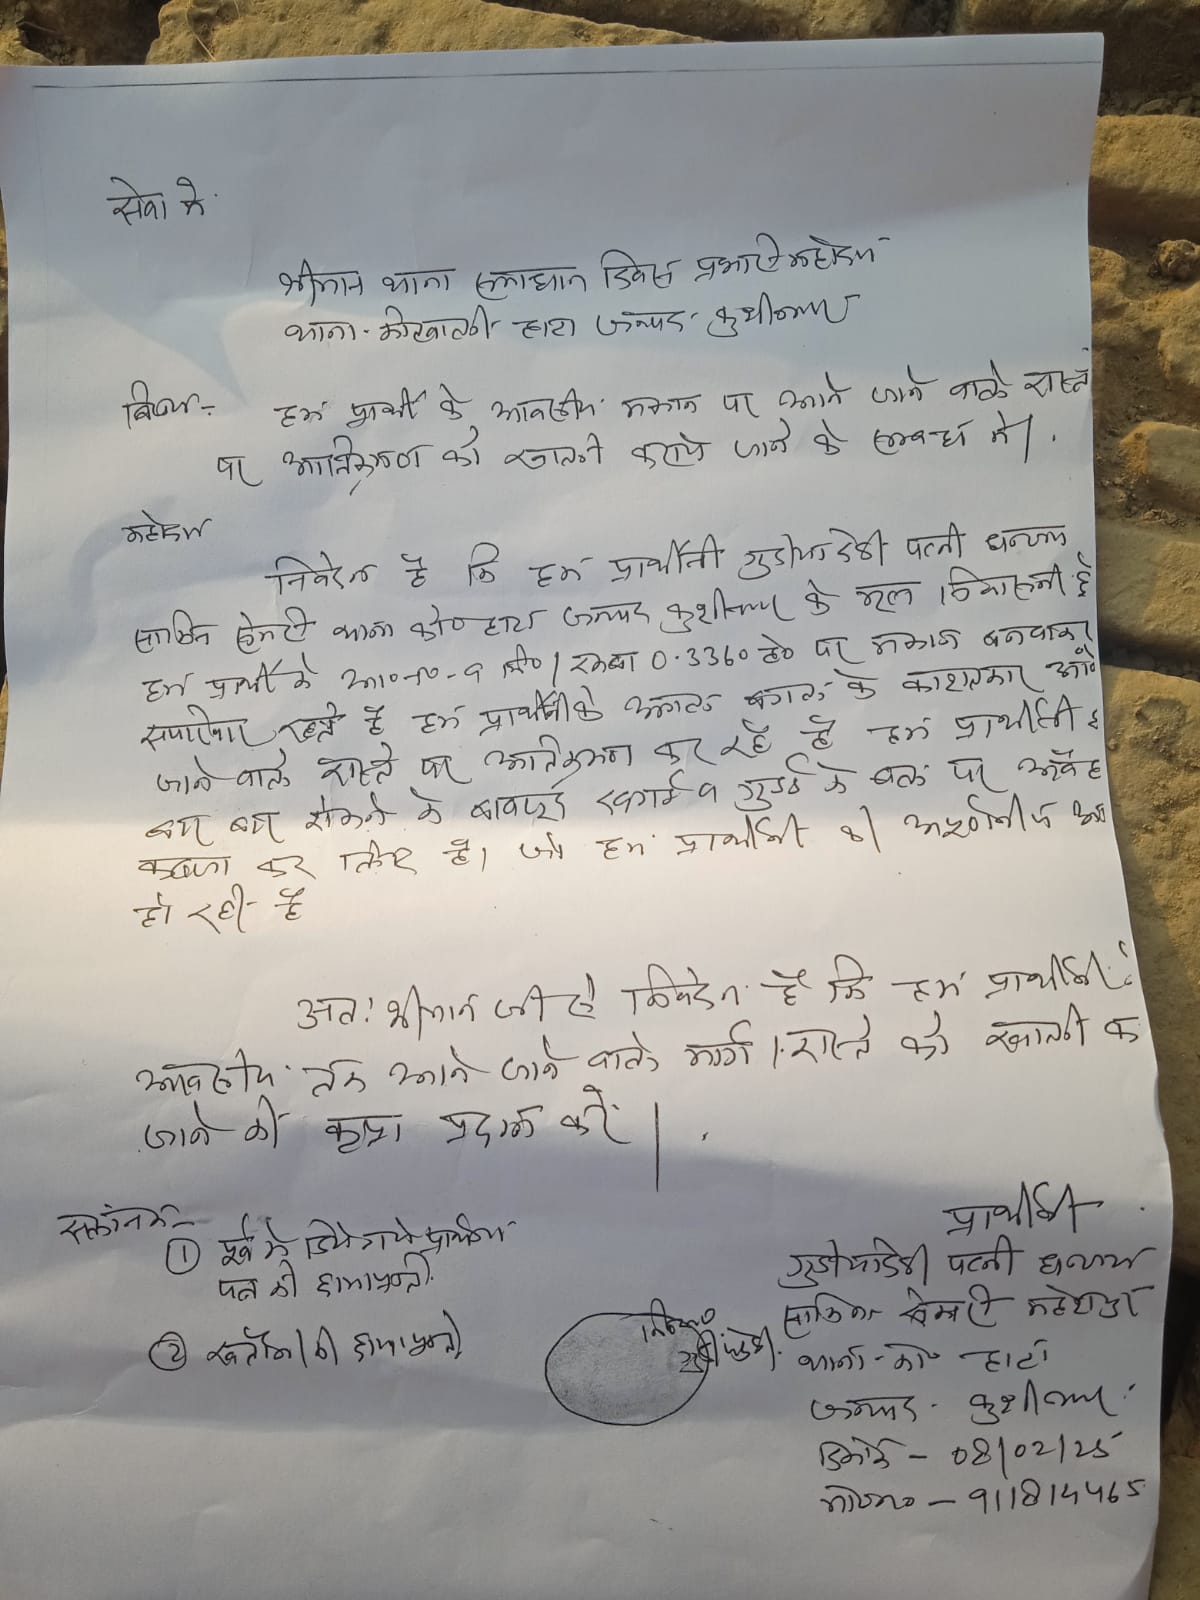 सेवा में
श्रीमान थाना समाधान दिवस प्रभारी महोदय
थाना-कोतवाली हाटा जनपद कुशीनगर
विषय:- हम प्रार्थी के आवासीय मकान पर आने जाने वाले रास्ते
पर अतिक्रमण को खाली कराये जाने के सम्बन्ध में।
महोदय
निवेदन है कि हम प्रार्थीनी गुड़ीया देवी पत्नी
साकिन थाना को० हाटा जनपद कुशीनगर के मूल निवासनी है
हम प्रार्थी के आ०न०-9 मि०/रकबा 0.3360 हे० पर मकान बनवाकर
सपरिवार रहते है हम प्रार्थीनी के अगल बगल के काश्तकार आने
जाने वाले रास्ते पर अतिक्रमण कर रहे है हम प्रार्थीनी
बार बार रोकने के बावजूद व गुंडई के बल पर अवैध
कब्जा कर लिए है। जो हम प्रार्थीनी
हो रही है
अतः श्रीमान जी से निवेदन है कि हम प्रार्थीनी
आवासीय तक आने जाने वाले मार्ग/रास्ते को खाली
जाने की कृपा प्रदान करें।
संलग्नक-
① पूर्व में दिये गये प्रार्थना
पत्र की छायाप्रती
② खतौनी की छायाप्रती
प्रार्थीनी
गुड़ीया देवी पत्नी
साकिन
थाना-को० हाटा
जनपद- कुशीनगर
दिनांक- 08/02/25
मो०न०- 911814465